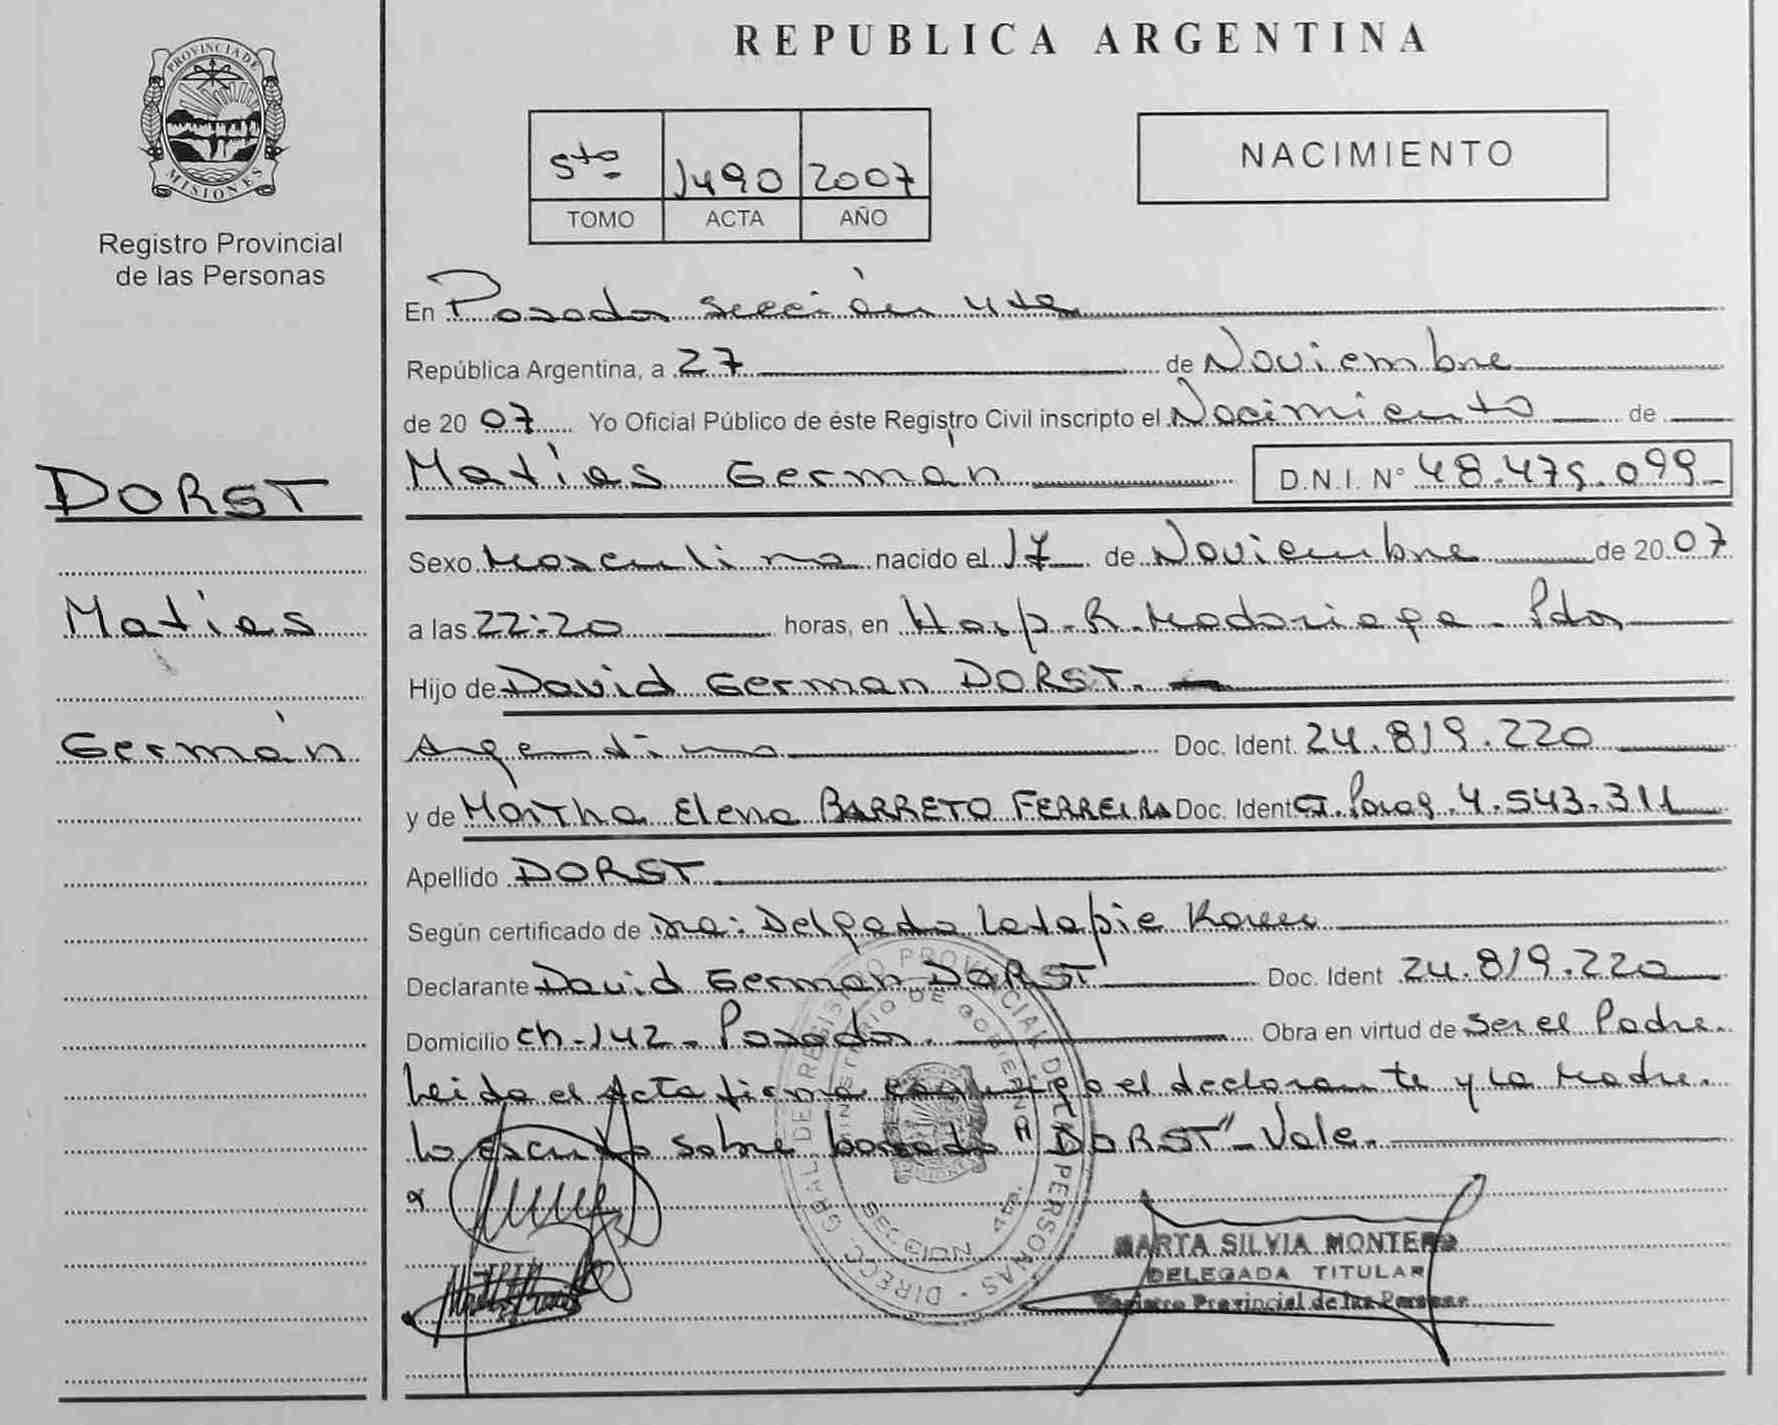 REPUBLICA ARGENTINA
PROVINCIA DE
MISIONES
Registro Provincial
de las Personas
5to 1490 2007
TOMO ACTA AÑO
NACIMIENTO
En Posadas sección 4ta
República Argentina, a 27 de Noviembre
de 2007 Yo Oficial Público de éste Registro Civil inscripto el Nacimiento de
Matías Germán D.N.I. N° 48.475.099
DORST
Matías
Germán
Sexo Masculino nacido el 17 de Noviembre de 2007
a las 22:20 horas, en Hosp. R. Madariaga - Pdas
Hijo de David German DORST.
Argentino Doc. Ident. 24.819.220
y de Martha Elena BARRETO FERREIRA Doc. Ident C.I. Parag. 4.543.311
Apellido DORST
Según certificado de Dra: Delgado Latapie Karen
Declarante David German DORST Doc. Ident 24.819.220
Domicilio Ch-142- Posadas. Obra en virtud de ser el Padre.
Leida el Acta firma conmigo el declarante y la Madre.
Lo escrito sobre borrado "DORST" - Vale.
DIRECC. GRAL DE REGISTRO PROVINCIAL DE LAS PERSONAS
MINISTERIO DE GOBIERNO
SECCION 4ta.
MARTA SILVIA MONTERO
DELEGADA TITULAR
Registro Provincial de las Personas